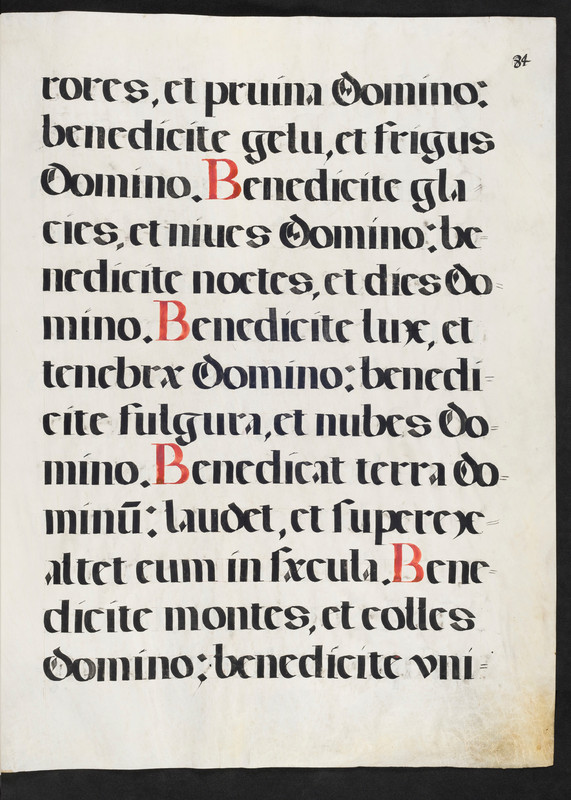 84
rores, et pruina Domino:
benedicite gelu, et frigus
Domino. Benedicite gla=
cies, et niues Domino: be=
nedicite noctes, et dies Do=
mino. Benedicite lux, et
tenebræ Domino: benedi=
cite fulgura, et nubes Do=
mino. Benedicat terra Do=
minū: laudet, et superex=
altet eum in sæcula. Bene=
dicite montes, et colles
Domino: benedicite vni=